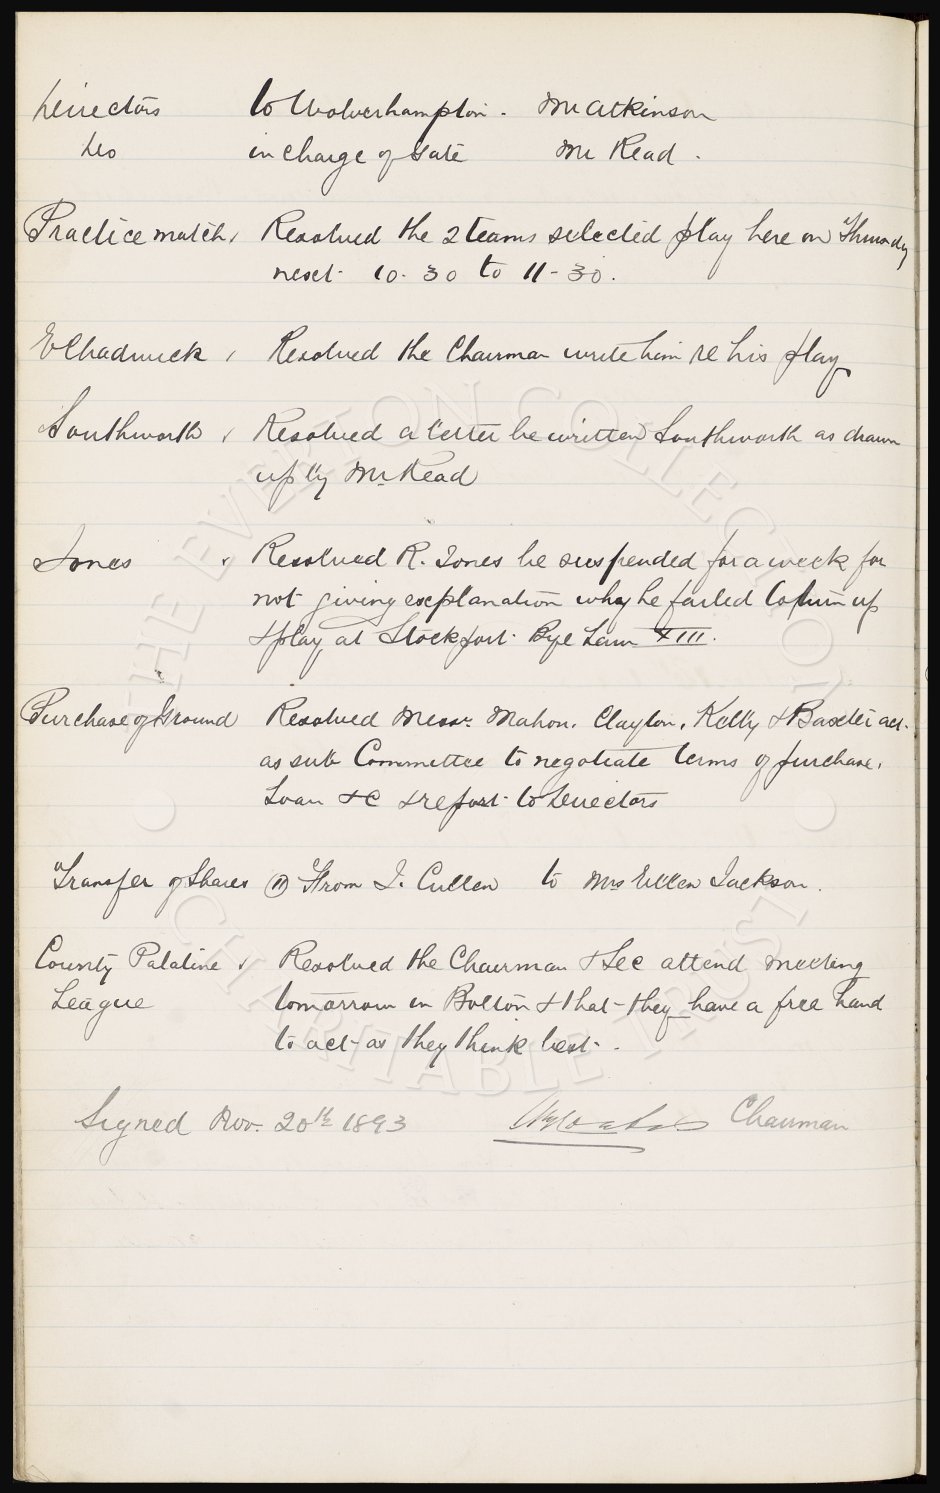 Directors to Wolverhampton. Mr Atkinson
Do in charge of Gate Mr Read.
Practice match, Resolved the 2 teams selected play here on Thursday
next 10.30 to 11-30.
E Chadwick, Resolved the Chairman write him re his play
Southworth, Resolved a letter be written Southworth as drawn
up by Mr Read
Jones. Resolved R. Jones be suspended for a week for
not giving explanation why he failed to turn up
& play at Stockport. Bye Law XIII.
Purchase of Ground Resolved Messrs Mahon, Clayton, Kelly & Baxter act
as sub Committee to negotiate terms of purchase,
Loan &c & report to Directors
Transfer of Shares (11) From J. Cullen to Mrs Ellen Jackson.
County Palatine, Resolved the Chairman & Sec attend meeting
League tomorrow in Bolton & that they have a free hand
to act as they think best.
Signed Nov. 20th 1893 Chairman
THE EVERTON COLLECTION
CHARITABLE TRUST